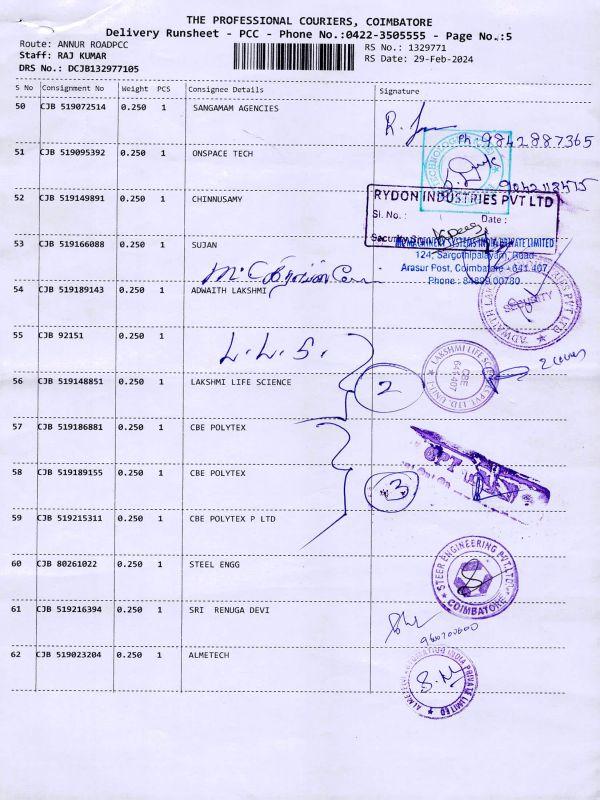 THE PROFESSIONAL COURIERS, COIMBATORE
Delivery Runsheet - PCC - Phone No.:0422-3505555 - Page No.:5
Route: ANNUR ROADPCC
RS No.: 1329771
Staff: RAJ KUMAR
RS Date: 29-Feb-2024
DRS No.: DCJB132977105
S No Consignment No Weight PCS Consignee Details Signature
50 CJB 519072514 0.250 1 SANGAMAM AGENCIES
Ph: 9842887365
51 CJB 519095392 0.250 1 ONSPACE TECH
52 CJB 519149891 0.250 1 CHINNUSAMY
RYDON INDUSTRIES PVT LTD
Sl. No. : Date :
53 CJB 519166088 0.250 1 SUJAN
SYSTEMS INDIA PRIVATE LIMITED
124, Sargothipalayam, Road
Arasur Post, Coimbatore - 641 407
Phone : 84899 00780
54 CJB 519189143 0.250 1 ADWAITH LAKSHMI
ADWAITH LAKSHMI PVT LTD
SECURITY
55 CJB 92151 0.250 1
L.L.S.
56 CJB 519148851 0.250 1 LAKSHMI LIFE SCIENCE
2
LAKSHMI LIFE SCIENCES PVT. LTD. UNIT I
CBE
641 407
57 CJB 519186881 0.250 1 CBE POLYTEX
58 CJB 519189155 0.250 1 CBE POLYTEX
3
59 CJB 519215311 0.250 1 CBE POLYTEX P LTD
60 CJB 80261022 0.250 1 STEEL ENGG
STEER ENGINEERING PVT.LTD.
COIMBATORE
61 CJB 519216394 0.250 1 SRI RENUGA DEVI
62 CJB 519023204 0.250 1 ALMETECH
INDIA PRIVATE LIMITED